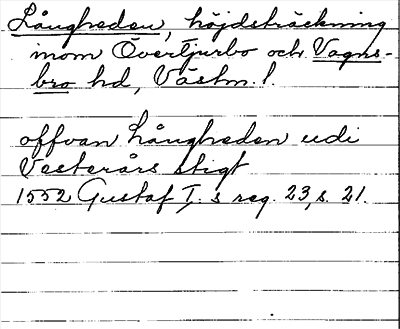 Långheden, höjdsträckning
inom Övertjurbo och Vagns-
bro hd, Västm. l.
offvan Långheden udi
Vesterårs stigt
1552 Gustaf I. s reg. 23, s. 21.